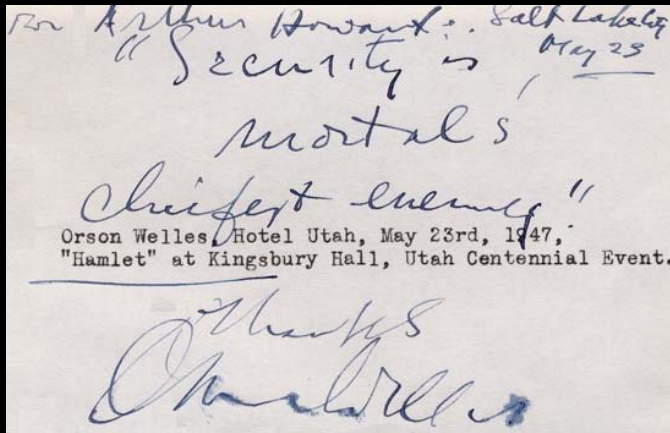 For Arthur Howard: Salt Lake City
May 23
"Security is
mortal's
chiefest enemy"
Orson Welles, Hotel Utah, May 23rd, 1947,
"Hamlet" at Kingsbury Hall, Utah Centennial Event.
Thanks
Orson Welles